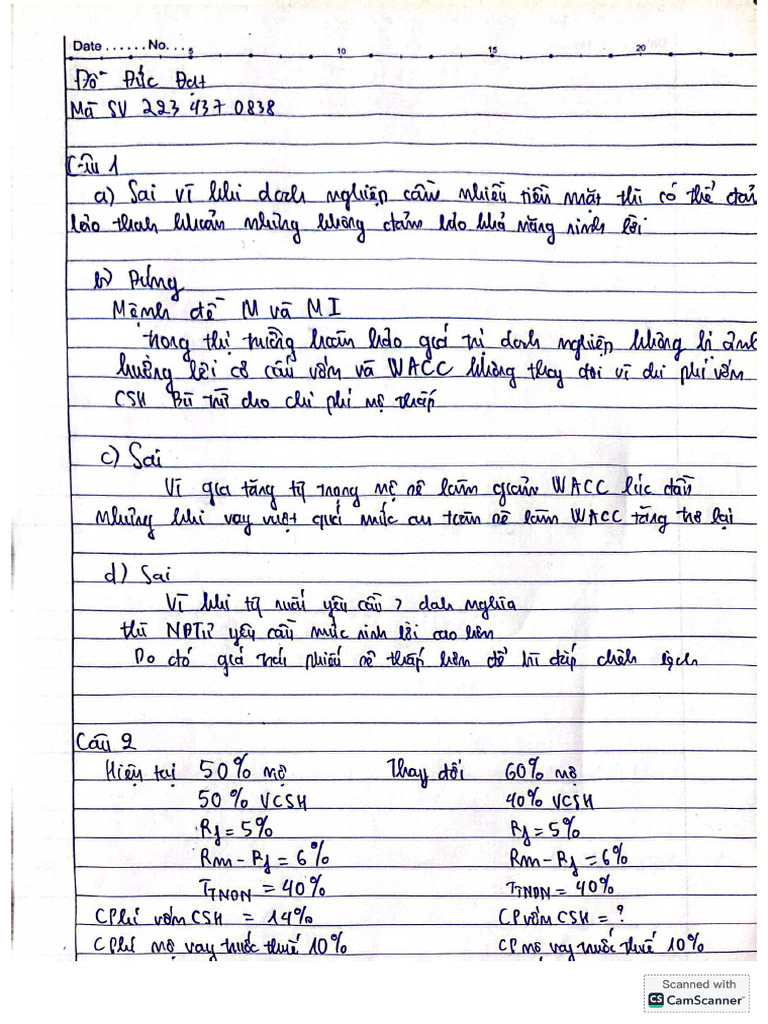 Date ...... No. ... 5 10 15 20
Đỗ Đức Đạt
Mã SV 223 437 0838
Câu 1
a) Sai vì khi doanh nghiệp cầm nhiều tiền mặt thì có thể đảm
bảo thanh khoản nhưng không đảm bảo khả năng sinh lời
b) Đúng
Mệnh đề M và M I
trong thị trường hoàn hảo giá trị doanh nghiệp không bị ảnh
hưởng bởi cơ cấu vốn và WACC không thay đổi vì chi phí vốn
CSH Bù trừ cho chi phí nợ thấp
c) Sai
Vì gia tăng tỷ trọng nợ sẽ làm giảm WACC lúc đầu
nhưng khi vay vượt quá mức an toàn sẽ làm WACC tăng trở lại
d) Sai
Vì khi tỷ suất yêu cầu > danh nghĩa
thì NĐTư yêu cầu mức sinh lời cao hơn
Do đó giá trái phiếu sẽ thấp hơn để bù đắp chênh lệch
Câu 2
Hiện tại 50% nợ Thay đổi 60% nợ
50% VCSH 40% VCSH
Rf = 5% Rf = 5%
Rm - Rf = 6% Rm - Rf = 6%
TTNDN = 40% TTNDN = 40%
CPhí vốn CSH = 14% CP vốn CSH = ?
CPhí nợ vay trước thuế 10% CP nợ vay trước thuế 10%
Scanned with
CS CamScanner